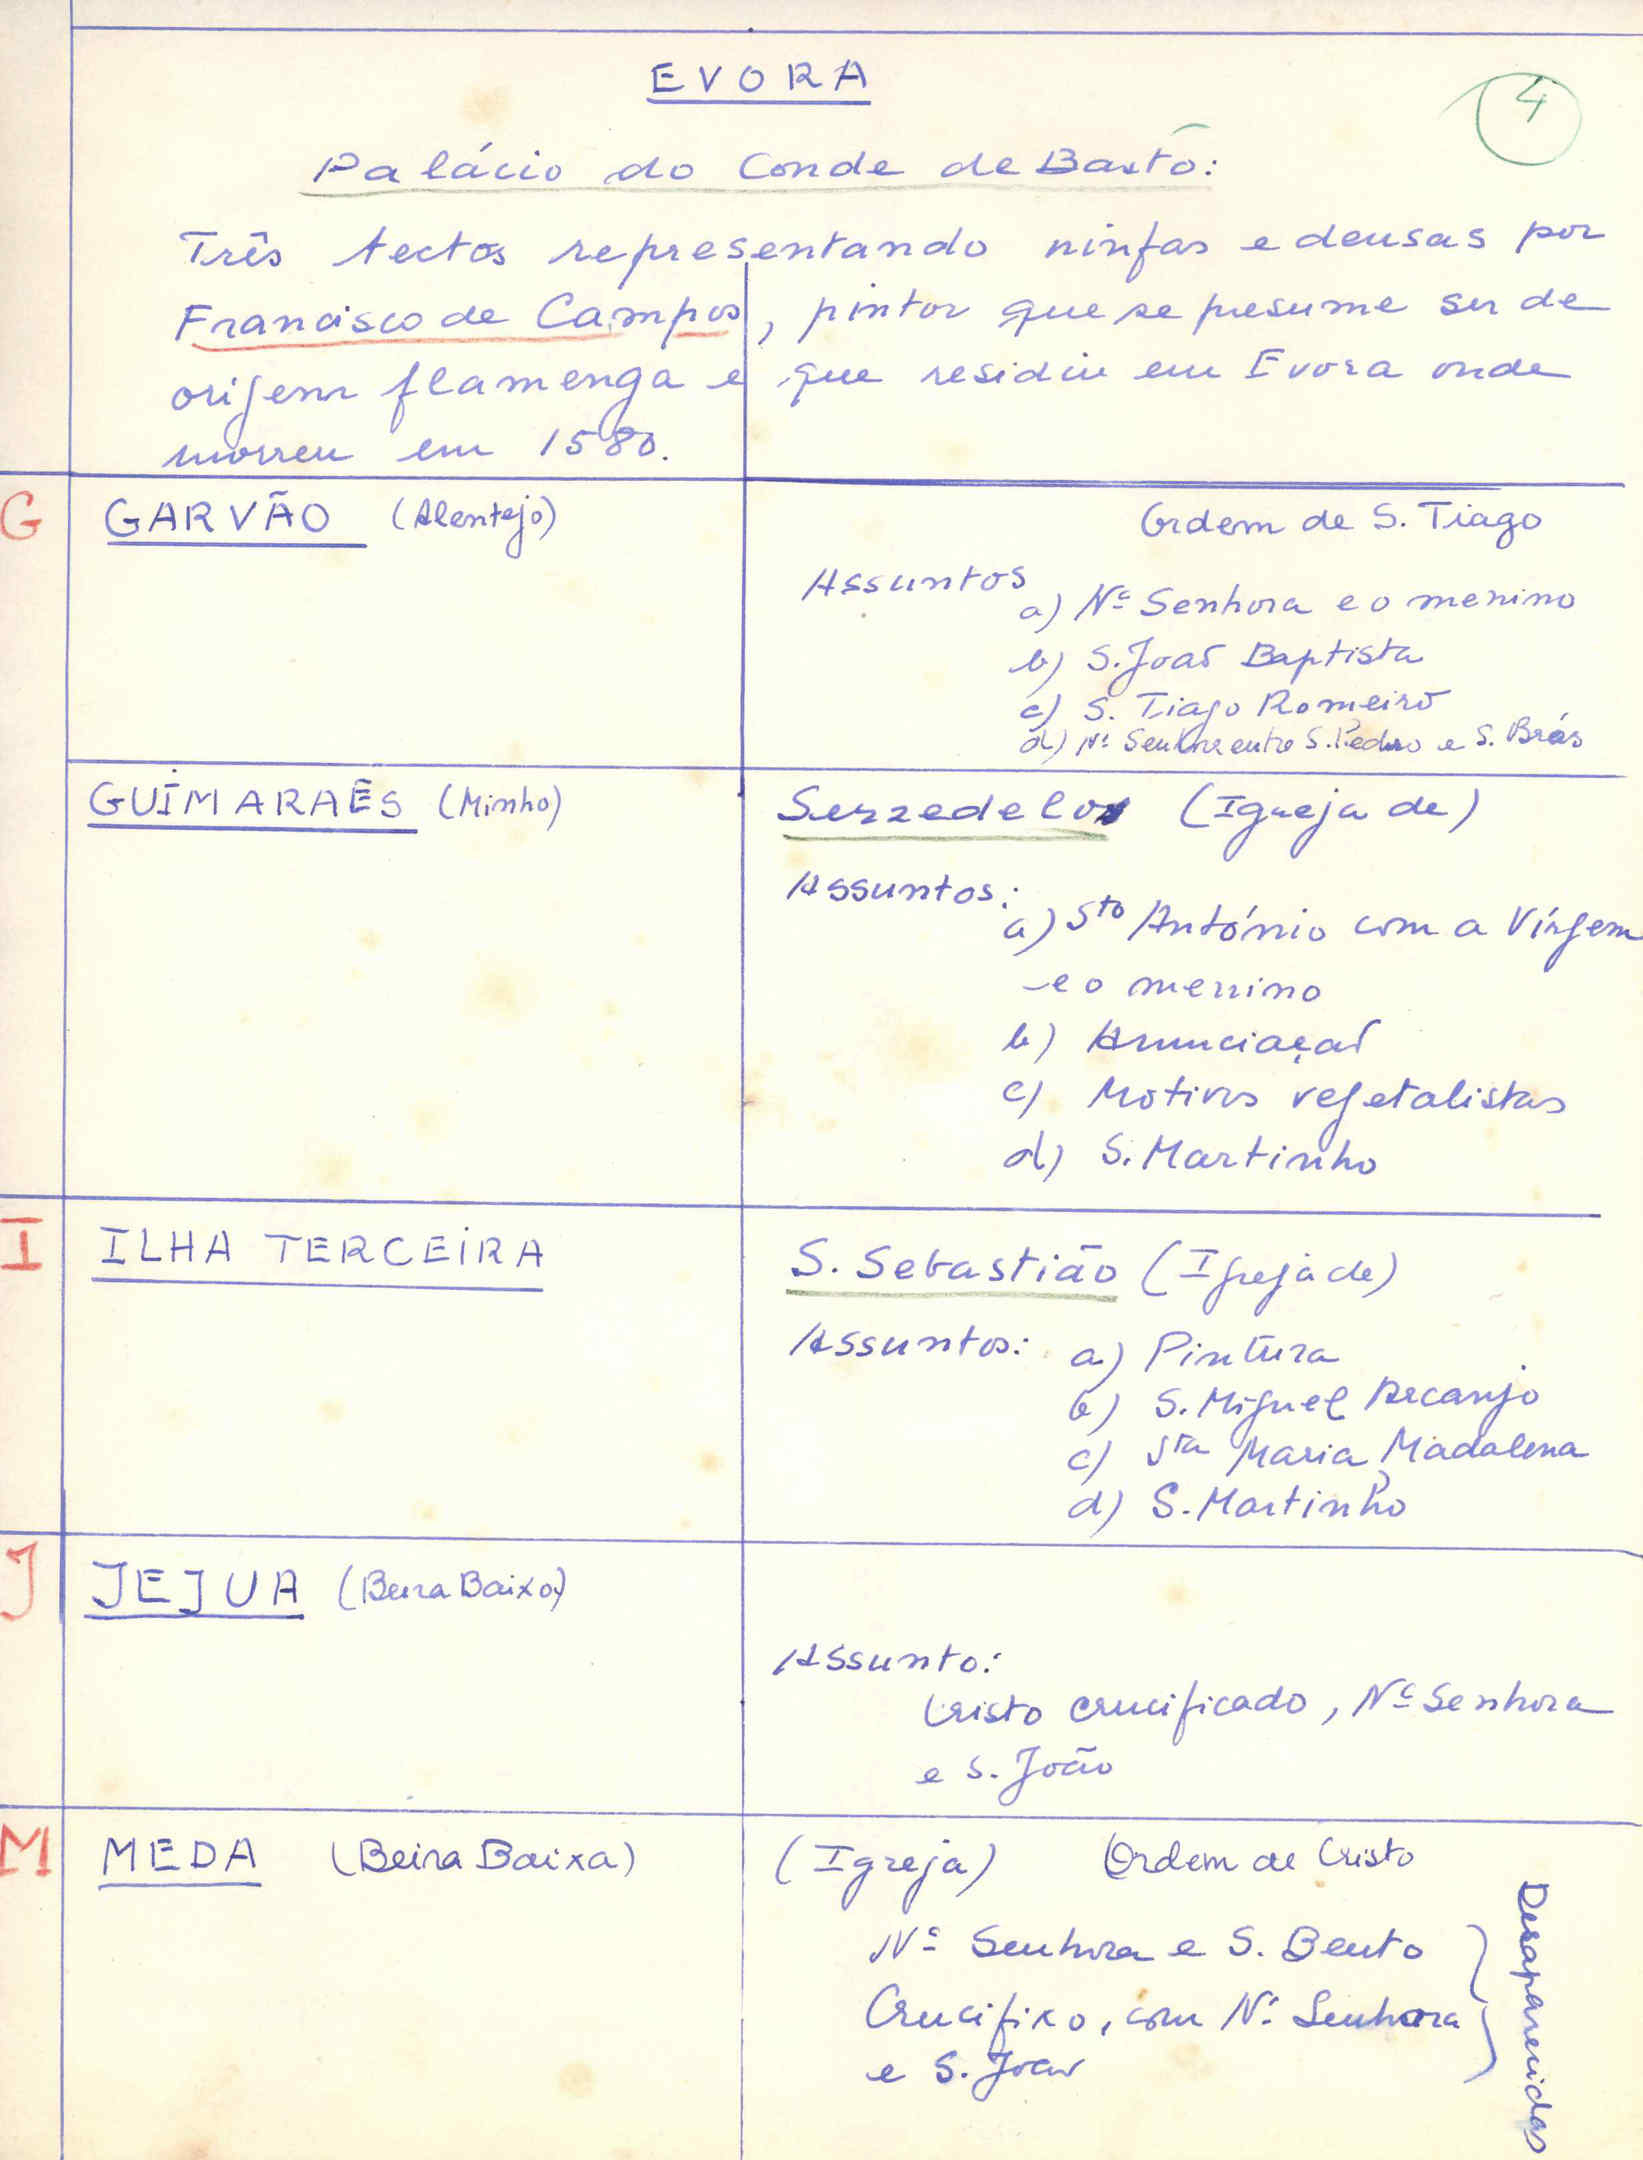 EVORA
4
Palácio do Conde de Basto:
Três tectos representando ninfas e deusas por
Francisco de Campos, pintor que se presume ser de
origem flamenga e que residiu em Evora onde
morreu em 1580.
G
GARVÃO (Alentejo)
Ordem de S. Tiago
Assuntos
a) Nª Senhora e o menino
b) S. João Baptista
c) S. Tiago Romeiro
d) Nª Senhora entre S. Pedro e S. Brás
GUIMARAES (Minho)
Serzedelo (Igreja de)
Assuntos:
a) Sto António com a Vírgem
e o menino
b) Anunciação
c) Motivos vegetalistas
d) S. Martinho
I
ILHA TERCEIRA
S. Sebastião (Igreja de)
Assuntos: a) Pintura
b) S. Miguel Arcanjo
c) Sta Maria Madalena
d) S. Martinho
J
JEJUA (Beira Baixa)
Assunto:
Cristo crucificado, Nª Senhora
e S. João
M
MEDA (Beira Baixa)
(Igreja) Ordem de Cristo
Nª Senhora e S. Bento
Crucifixo, com Nª Senhora
e S. João
Desaparecidas